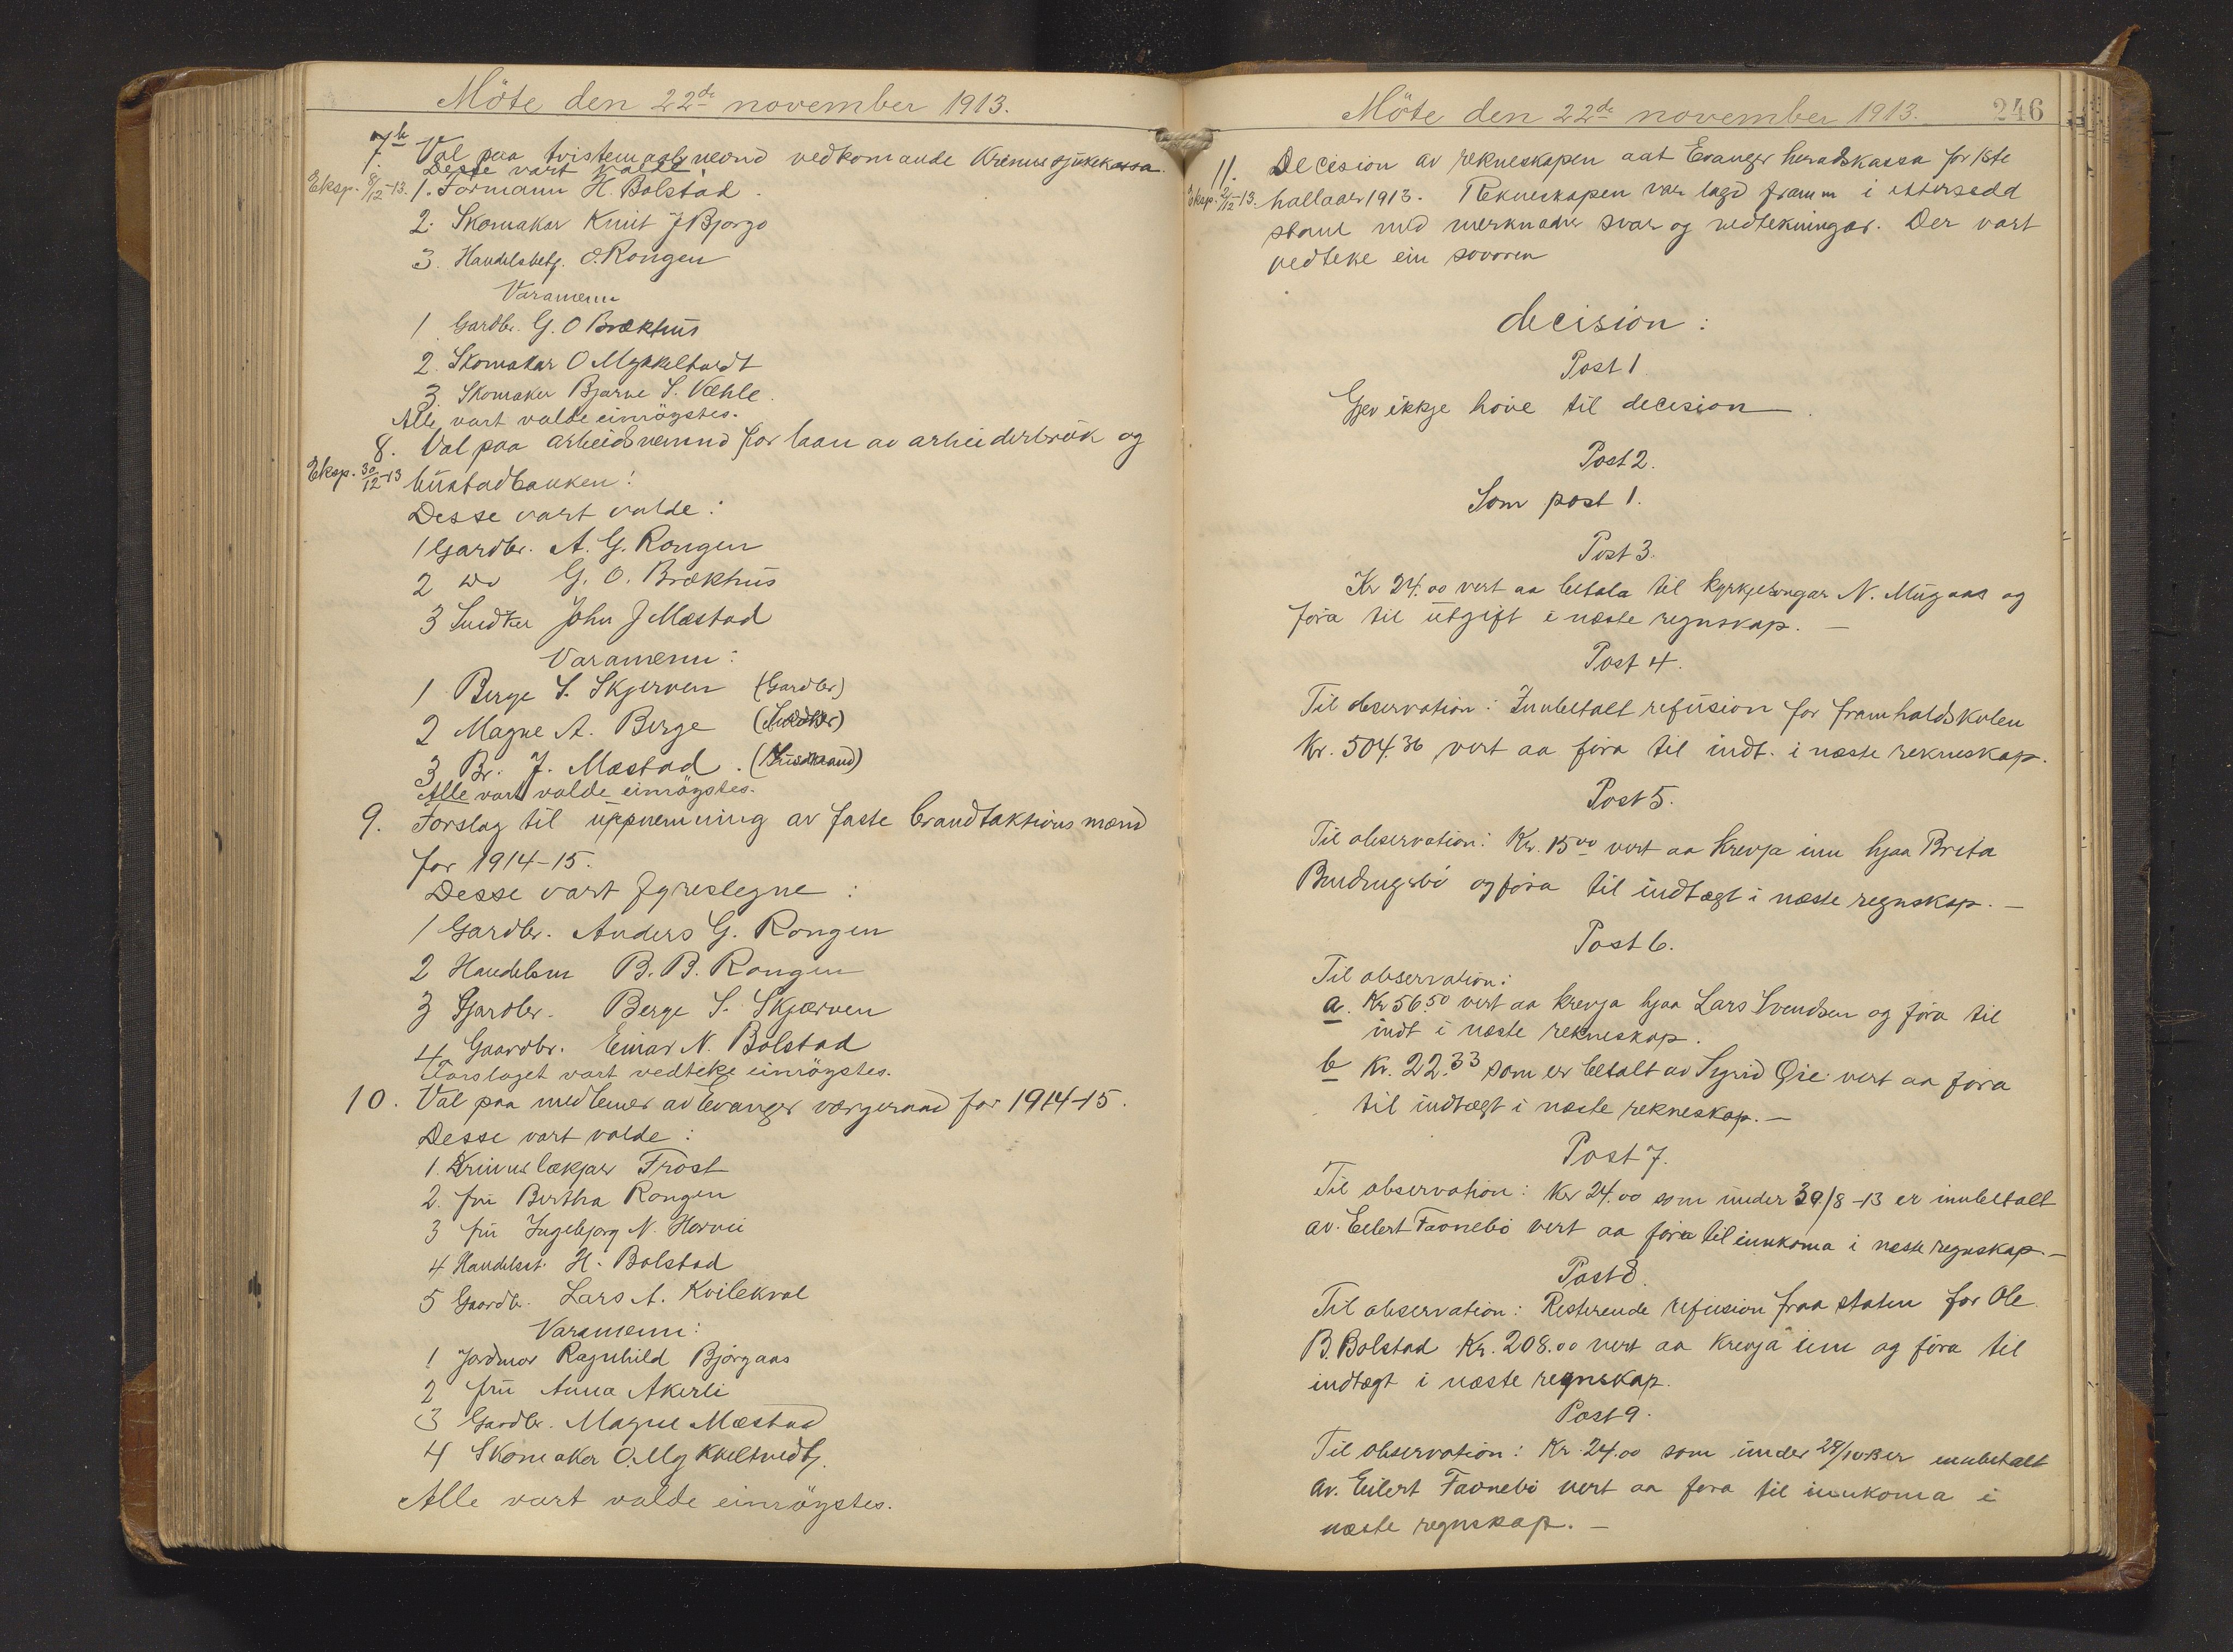 Möte den 22de november 1913.
7b Val paa tvistemaalsnevnd vedkomande Krinssjukekassa.
Desse vart valde:
Eksp. 8/12-13. 1. Formann H. Bolstad.
2. Skomakar Knut J Bjorgo
3. Handelsbetj. O. Rongen
Varamenn
1 Gardbr. G. O Brækhus
2. Skomakar O Mykkeltvedt
3. Skomaker Bjarne S. Væhle.
Alle vart valde einröystes.
8. Val paa arbeidsnemnd for laan av arbeiderbruk og
Eksp. 30/12-13 bustadbanken:
Desse vart valde:
1 Gardbr. A. G. Rongen
2 do G. O. Brækhus
3 Snidker John J Mæstad
Varamenn:
1 Berge S. Skjerven (Gardbr)
2 Magne A. Berge (Snidker)
3 Br. J. Mæstad. (Husmand)
Alle vart valde einröystes.
9. Forslag til uppnemning av faste brandtakstions mænd
for 1914-15.
Desse vart fyreslegne:
1 Gardbr. Anders G. Rongen
2 Handelsm B. B. Rongen
3 Gardbr. Berge S. Skjærven
4 Gaardbr. Einar N. Bolstad
Forslaget vart vedteke einröystes.
10. Val paa medlemer av Evanger vergeraad for 1914-15.
Desse vart valde:
1. Krinslækjar Frost
2. fru Bertha Rongen
3 fru Ingebjorg N. Horvei
4 Handelsst. H. Bolstad
5 Gaardb. Lars A. Kvilekval
Varamenn:
1 Jordmor Ragnhild Bjørgaas
2 fru Anna Akerli
3 Gardbr. Magne Mæstad
4 Skomakar O. Mykkeltvedt.
Alle vart valde einröystes.
Möte den 22de november 1913. 246
11. Decision av rekneskapen aat Evanger heradskassa for 1ste
Eksp. 2/12-13. halvaar 1913. Rekneskapen var lagd framm i ettersedd
stand med merknader svar og vedtekningar. Der vart
vedteke ein sovoren
decision:
Post 1
Gjev ikkje høve til decision.
Post 2.
Som post 1.
Post 3.
Kr 24.00 vert aa betala til kyrkjesongar N. Mugaas og
føra til utgift i næste regnskap. —
Post 4.
Til observation: Innbetalt refusion for framhaldskulen
Kr. 504.36 vert aa føra til indt. i næste rekneskap.
Post 5.
Til observation: Kr. 15.00 vert aa krevja inn hjaa Brita
og føra til indtægt i næste regnskap. —
Post 6.
Til observation:
a. Kr 56.50 vert aa krevja hjaa Lars Svendsen og føra til
indt i næste rekneskap.
b Kr. 22.33 som er betalt av Sigrid Øie vert aa føra
til indtægt i næste rekneskap. —
Post 7.
Til observation: Kr 24.00 som under 30/8-13 er innbetalt
av. Eilert Favnebø vert aa føra til innkoma i næste regnskap. —
Post 8.
Til observation: Resterende refusion fraa staten for Ole
B. Bolstad Kr. 208.00 vert aa krevja inn og føra til
indtægt i næste regnskap.
Post 9.
Til observation: Kr. 24.00 som under 28/10-13 er innbetalt
av. Eilert Favnebø vert aa føra til innkoma i
næste regnskap. —